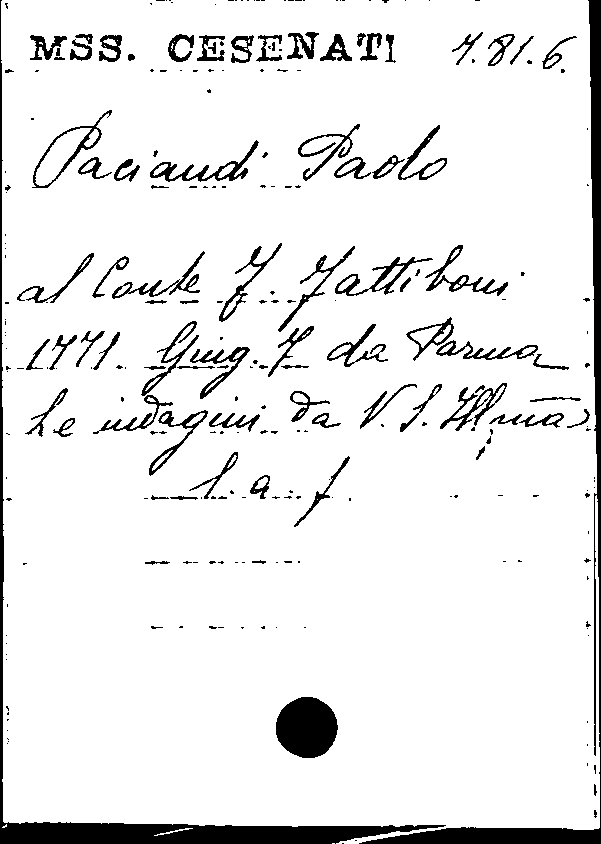 MSS. CESENATI 7.81.6.
Paciaudi Paolo
al Conte F. Fattiboni
1771. Giug. 7 da Parma
Le indagini da V. S. Illmã
l. a. f.